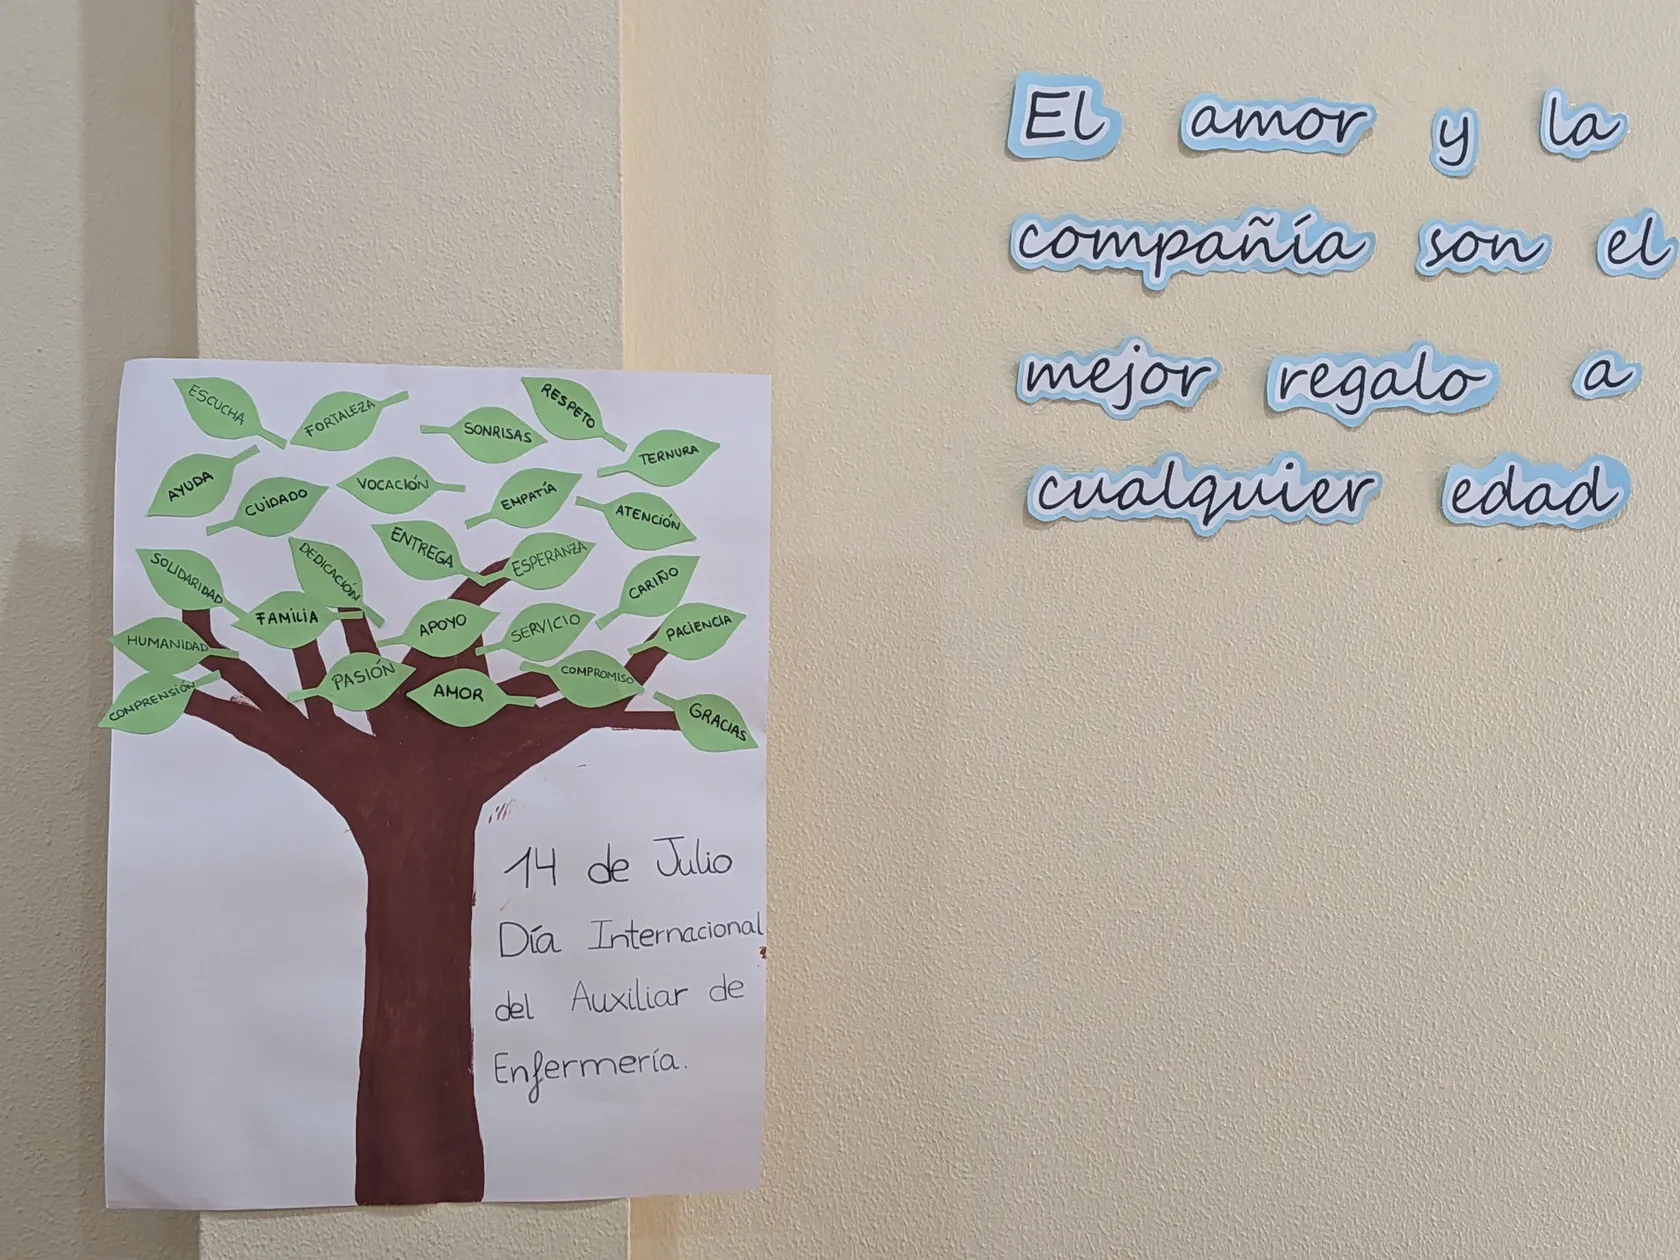 El amor y la
compañía son el
mejor regalo a
cualquier edad
ESCUCHA
FORTALEZA
SONRISAS
RESPETO
TERNURA
AYUDA
CUIDADO
VOCACIÓN
EMPATÍA
ATENCIÓN
SOLIDARIDAD
DEDICACIÓN
ENTREGA
ESPERANZA
CARIÑO
HUMANIDAD
FAMILIA
APOYO
SERVICIO
PACIENCIA
COMPRENSIÓN
PASIÓN
AMOR
COMPROMISO
GRACIAS
14 de Julio
Día Internacional
del Auxiliar de
Enfermería.